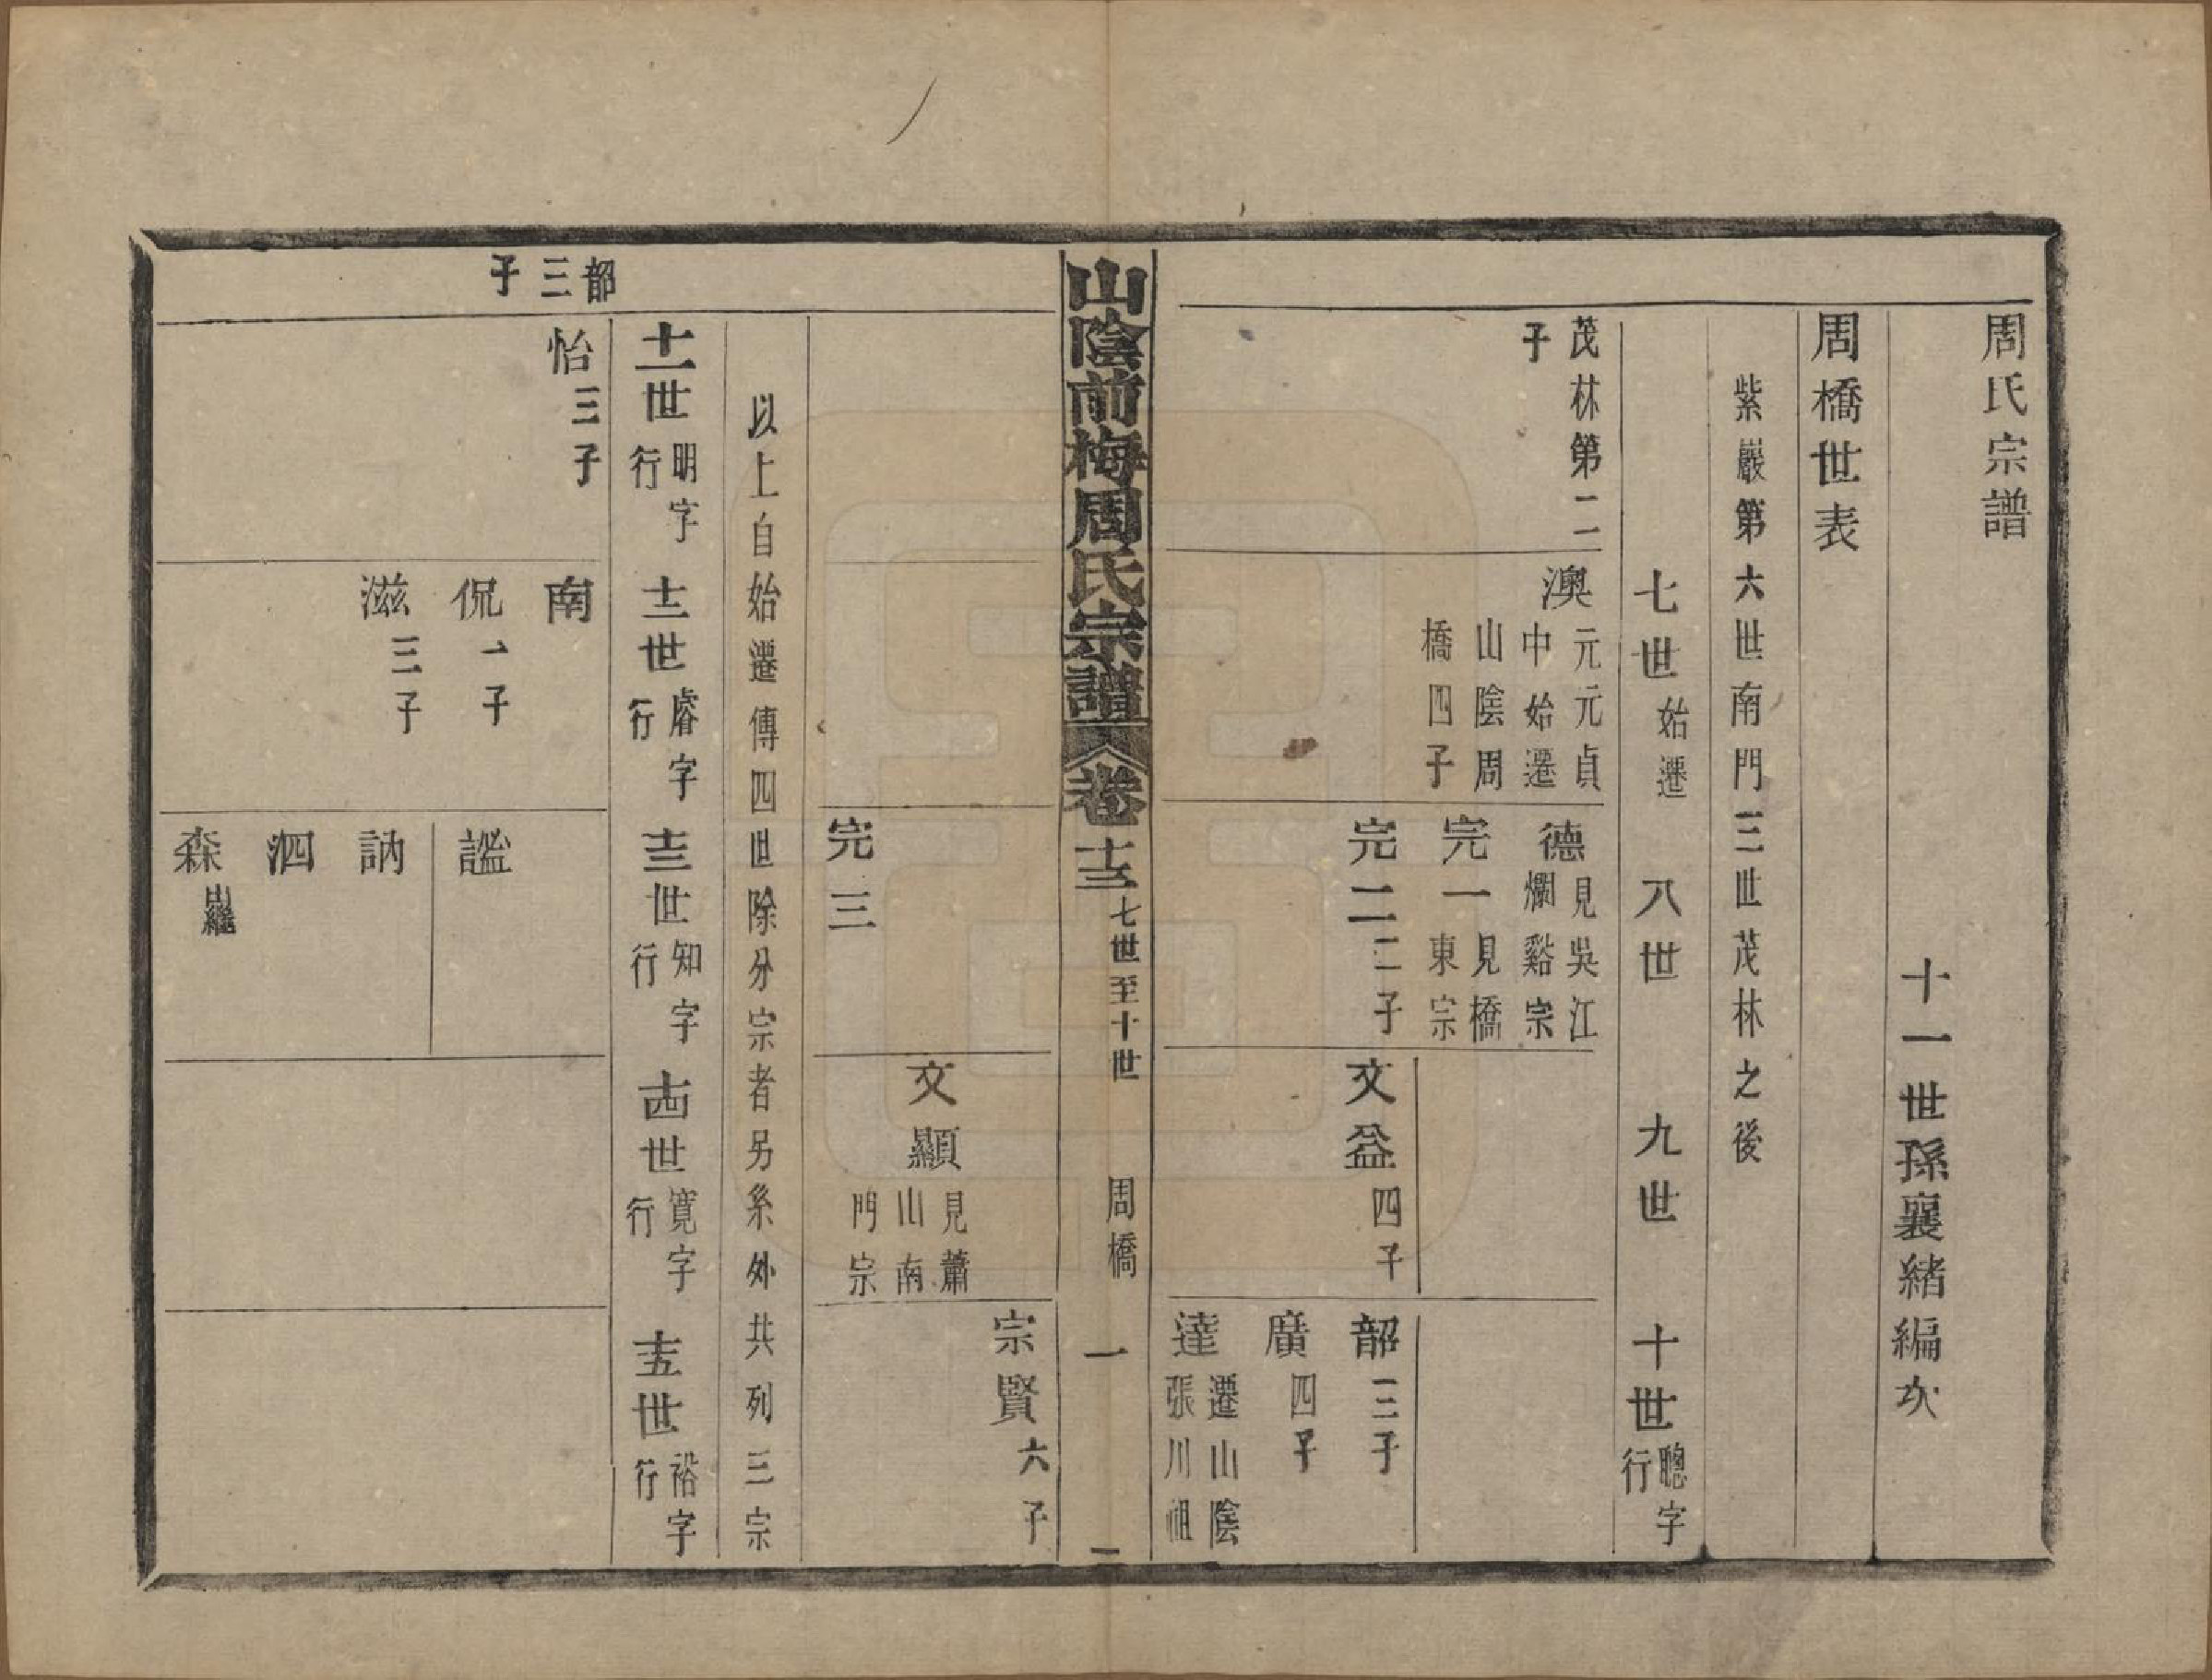 周氏宗譜
十一世孫襄緒編次
周橋世表
紫巖第六世南門三世茂林之後
七世始遷
八世
九世
十世聰字行
茂林第二子
澳元元貞中始遷山陰周橋四子
德見吳江爛谿宗
完一見橋東宗
完二二子
文益四子
韶三子
廣四子
達遷山陰張川祖
山陰前梅周氏宗譜
卷十三
七世至十世
周橋
一
完三
文顯見蕭山南門宗
宗賢六子
以上自始遷傳四世除分宗者另系外共列三宗
十一世明字行
十二世睿字行
十三世知字行
十四世寬字行
十五世裕字行
韶三子
怡三子
南
侃一子
滋三子
謐
訥
泗
森出繼